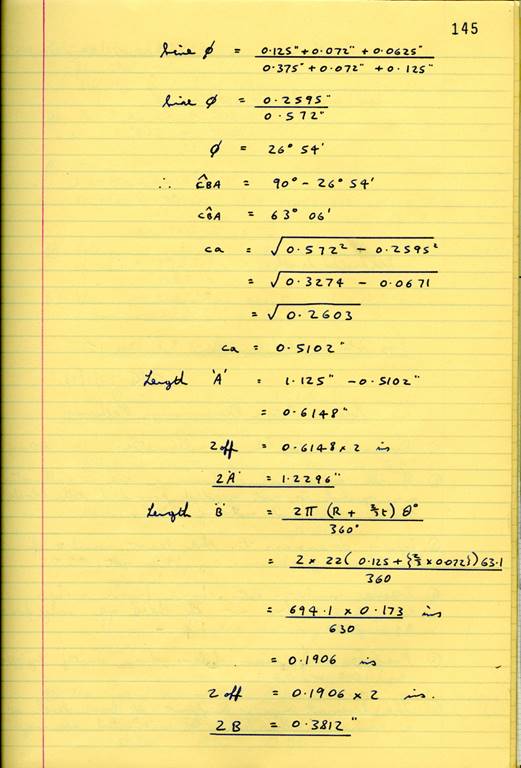 145
Sine ø = 0.125" + 0.072" + 0.0625"
0.375" + 0.072" + 0.125"
Sine ø = 0.2595"
0.572"
ø = 26° 54'
∴ CB̂A = 90° - 26° 54'
CB̂A = 63° 06'
ca = √0.572² - 0.2595²
= √0.3274 - 0.0671
= √0.2603
ca = 0.5102"
Length 'A' = 1.125" - 0.5102"
= 0.6148"
2 off = 0.6148 x 2 ins
2 'A' = 1.2296"
Length 'B' = 2π (R + ⅔t) θ°
360°
= 2 x 22 (0.125 + {⅔ x 0.072}) 63.1
360
= 694.1 x 0.173 ins
630
= 0.1906 ins
2 off = 0.1906 x 2 ins.
2 B = 0.3812"